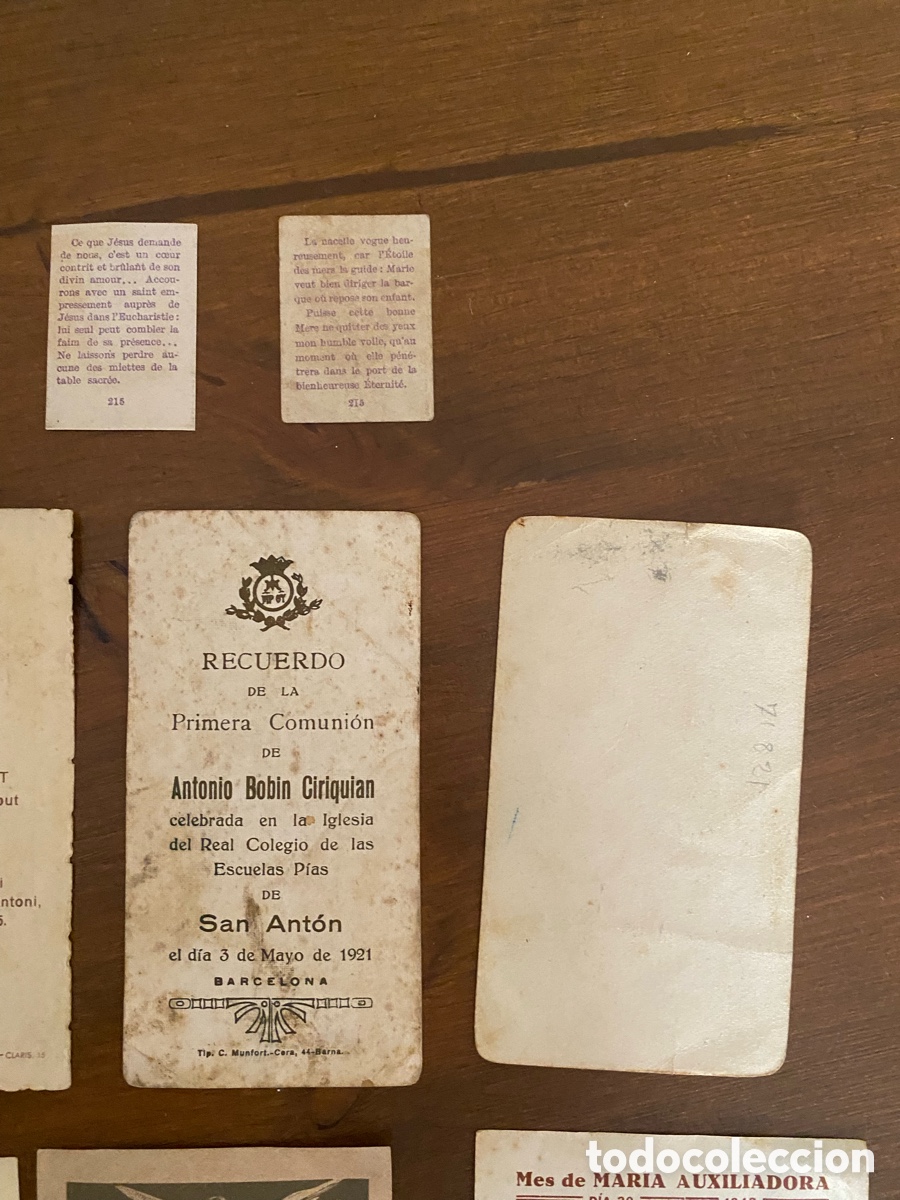 Ce que Jésus demande
de nous, c'est un cœur
contrit et brûlant de son
divin amour... Accou-
rons avec un saint em-
pressement auprès de
Jésus dans l'Eucharistie:
lui seul peut combler la
faim de sa présence...
Ne laissons perdre au-
cune des miettes de la
table sacrée.
215
La nacelle vogue heu-
reusement, car l'Étoile
des mers la guide: Marie
veut bien diriger la bar-
que où repose son enfant.
Puisse cette bonne
Mère ne quitter des yeux
mon humble voile, qu'au
moment où elle péné-
trera dans le port de la
bienheureuse Éternité.
215
T
out
i
ntoni,
5.
- CLARIS, 15
RECUERDO
DE LA
Primera Comunión
DE
Antonio Bobin Ciriquian
celebrada en la Iglesia
del Real Colegio de las
Escuelas Pías
DE
San Antón
el día 3 de Mayo de 1921
BARCELONA
Tip. C. Munfort.-Cera, 44-Barna.
Mes de MARIA AUXILIADORA
todocoleccion